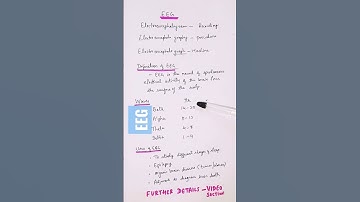 EEG
Electroencephalogram - Recording
Electroencephalography - procedure
Electroencephalograph - Machine
Definition of EEG
- EEG is the record of spontaneous
electrical activity of the brain from
the surface of the scalp
Waves Hz
Beta
Alpha 8 - 13
Theta 4 - 8
Delta 1 - 4
EEG
Uses of EEG
- To study different stages of sleep
- Epilepsy
- Organic brain disease
- Adjunct to diagnose brain death
FURTHER DETAILS - VIDEO
SECTION